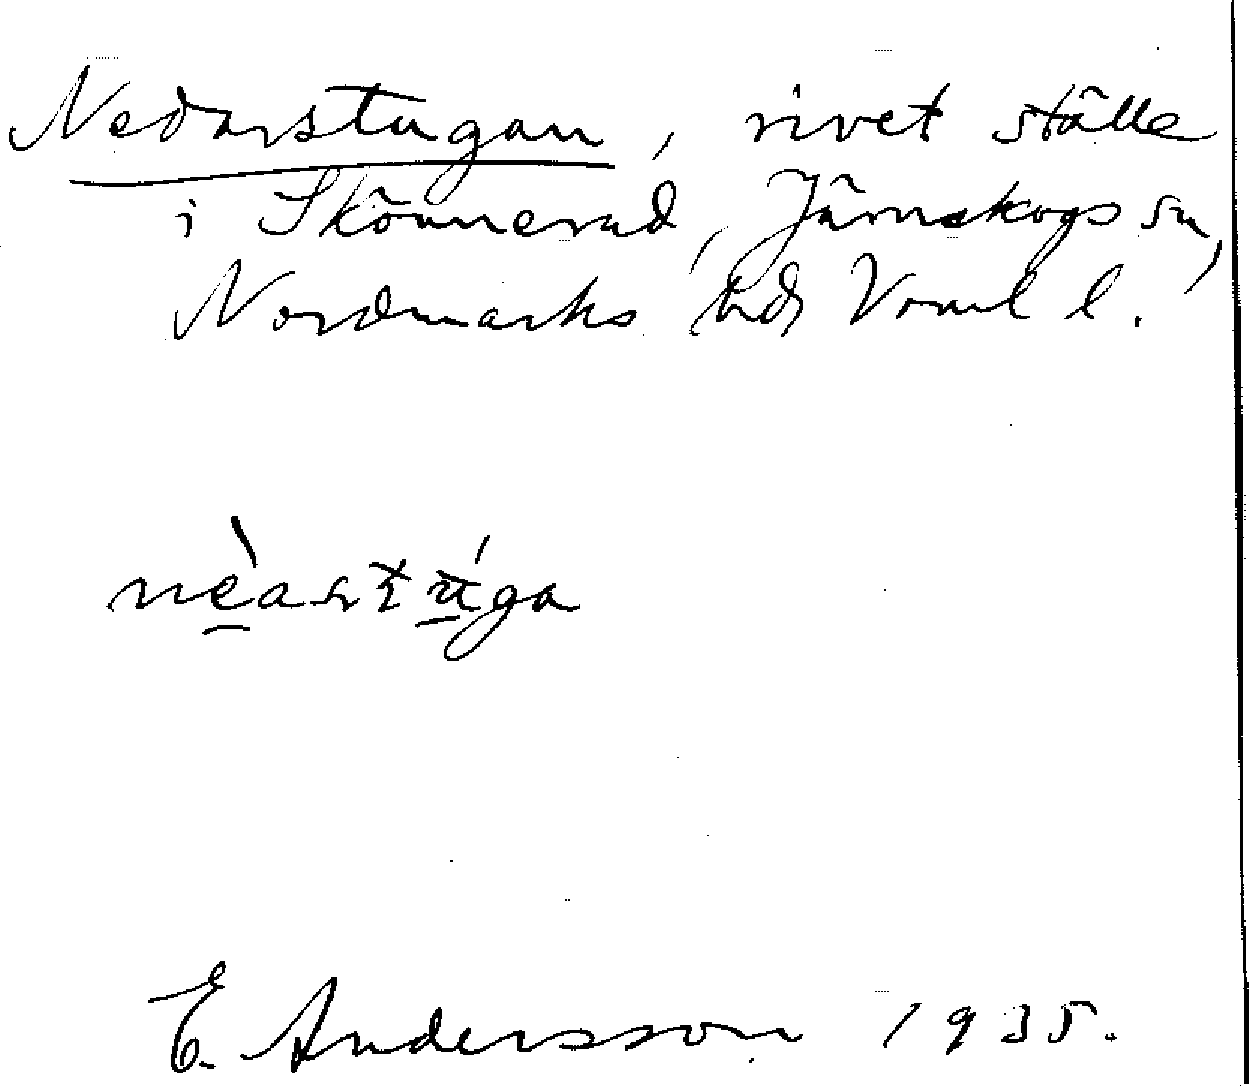 Nedarstugan, rivet ställe
i Skönnerud, Järnskogs sn,
Nordmarks hd, Värml l.
E. Andersson 1935.